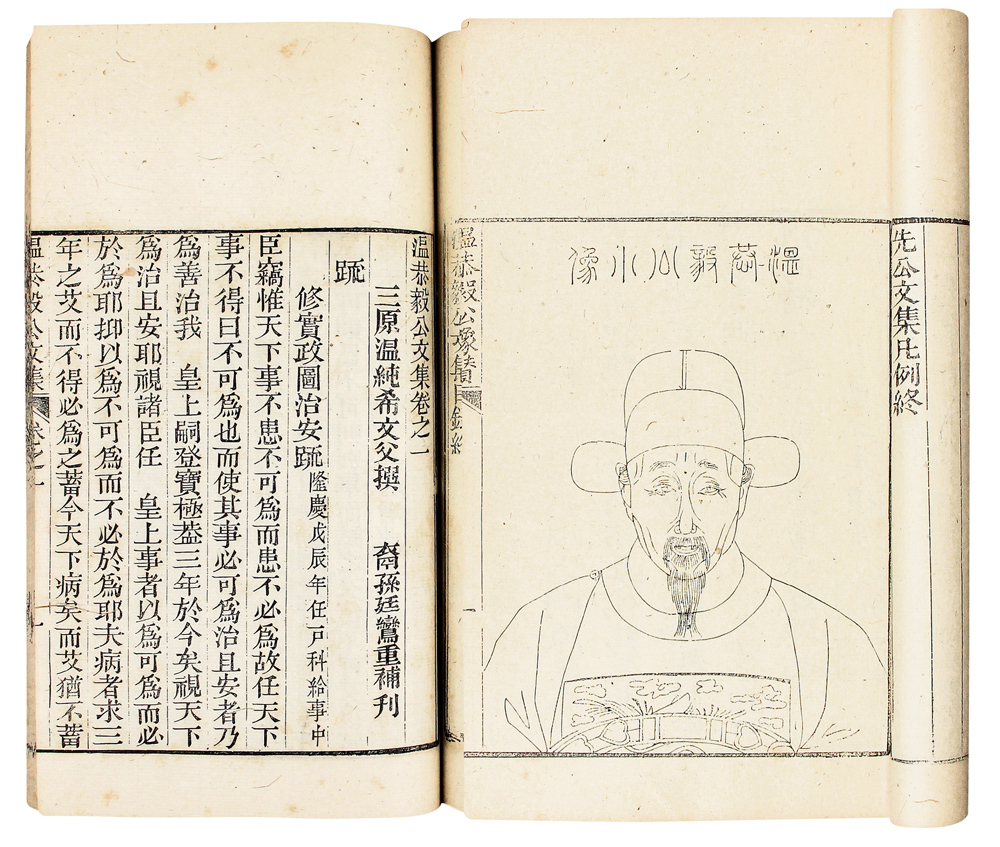 先公文集凡例終
温恭毅公小像
温恭毅公
温恭毅公文集卷之一
三原温純希文父撰　裔孫廷鸞重補刊
疏
修實政圖治安疏 隆慶戊辰年任戸科給事中
臣竊惟天下事不患不可爲而患不必爲故任天下
事不得曰不可爲也而使其事必可爲治且安者乃
爲善治我　皇上嗣登寶極葢三年於今矣視天下
爲治且安耶視諸臣任　皇上事者以爲可爲而必
於爲耶抑以爲不可爲而不必於爲耶夫病者求三
年之艾而不得必爲之蓄今天下病矣而艾猶不蓄
温恭毅公文集　卷之一　一